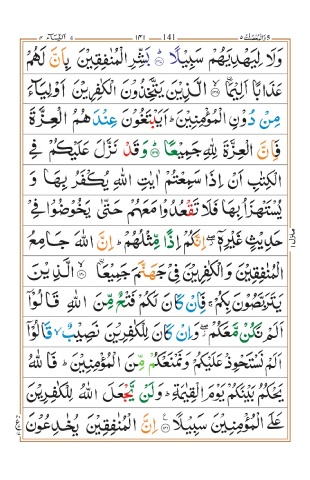 141
وَلَا لِيَهْدِيَهُمْ سَبِيْلًا ۝ بَشِّرِ الْمُنٰفِقِيْنَ بِاَنَّ لَهُمْ
عَذَابًا اَلِيْمًا ۝ الَّذِيْنَ يَتَّخِذُوْنَ الْكٰفِرِيْنَ اَوْلِيَآءَ
مِنْ دُوْنِ الْمُؤْمِنِيْنَ ؕ اَيَبْتَغُوْنَ عِنْدَهُمُ الْعِزَّةَ
فَاِنَّ الْعِزَّةَ لِلّٰهِ جَمِيْعًا ۝ وَقَدْ نَزَّلَ عَلَيْكُمْ فِي
الْكِتٰبِ اَنْ اِذَا سَمِعْتُمْ اٰيٰتِ اللّٰهِ يُكْفَرُ بِهَا وَ
يُسْتَهْزَاُ بِهَا فَلَا تَقْعُدُوْا مَعَهُمْ حَتّٰى يَخُوْضُوْا فِيْ
حَدِيْثٍ غَيْرِهٖۤ ۖ اِنَّكُمْ اِذًا مِّثْلُهُمْ ؕ اِنَّ اللّٰهَ جَامِعُ
الْمُنٰفِقِيْنَ وَالْكٰفِرِيْنَ فِيْ جَهَنَّمَ جَمِيْعًا ۝ الَّذِيْنَ
يَتَرَبَّصُوْنَ بِكُمْ ۚ فَاِنْ كَانَ لَكُمْ فَتْحٌ مِّنَ اللّٰهِ قَالُوْۤا
اَلَمْ نَكُنْ مَّعَكُمْ ۖ وَاِنْ كَانَ لِلْكٰفِرِيْنَ نَصِيْبٌ ۙ قَالُوْۤا
اَلَمْ نَسْتَحْوِذْ عَلَيْكُمْ وَنَمْنَعْكُمْ مِّنَ الْمُؤْمِنِيْنَ ؕ فَاللّٰهُ
يَحْكُمُ بَيْنَكُمْ يَوْمَ الْقِيٰمَةِ ؕ وَلَنْ يَّجْعَلَ اللّٰهُ لِلْكٰفِرِيْنَ
عَلَى الْمُؤْمِنِيْنَ سَبِيْلًا ۝ اِنَّ الْمُنٰفِقِيْنَ يُخٰدِعُوْنَ